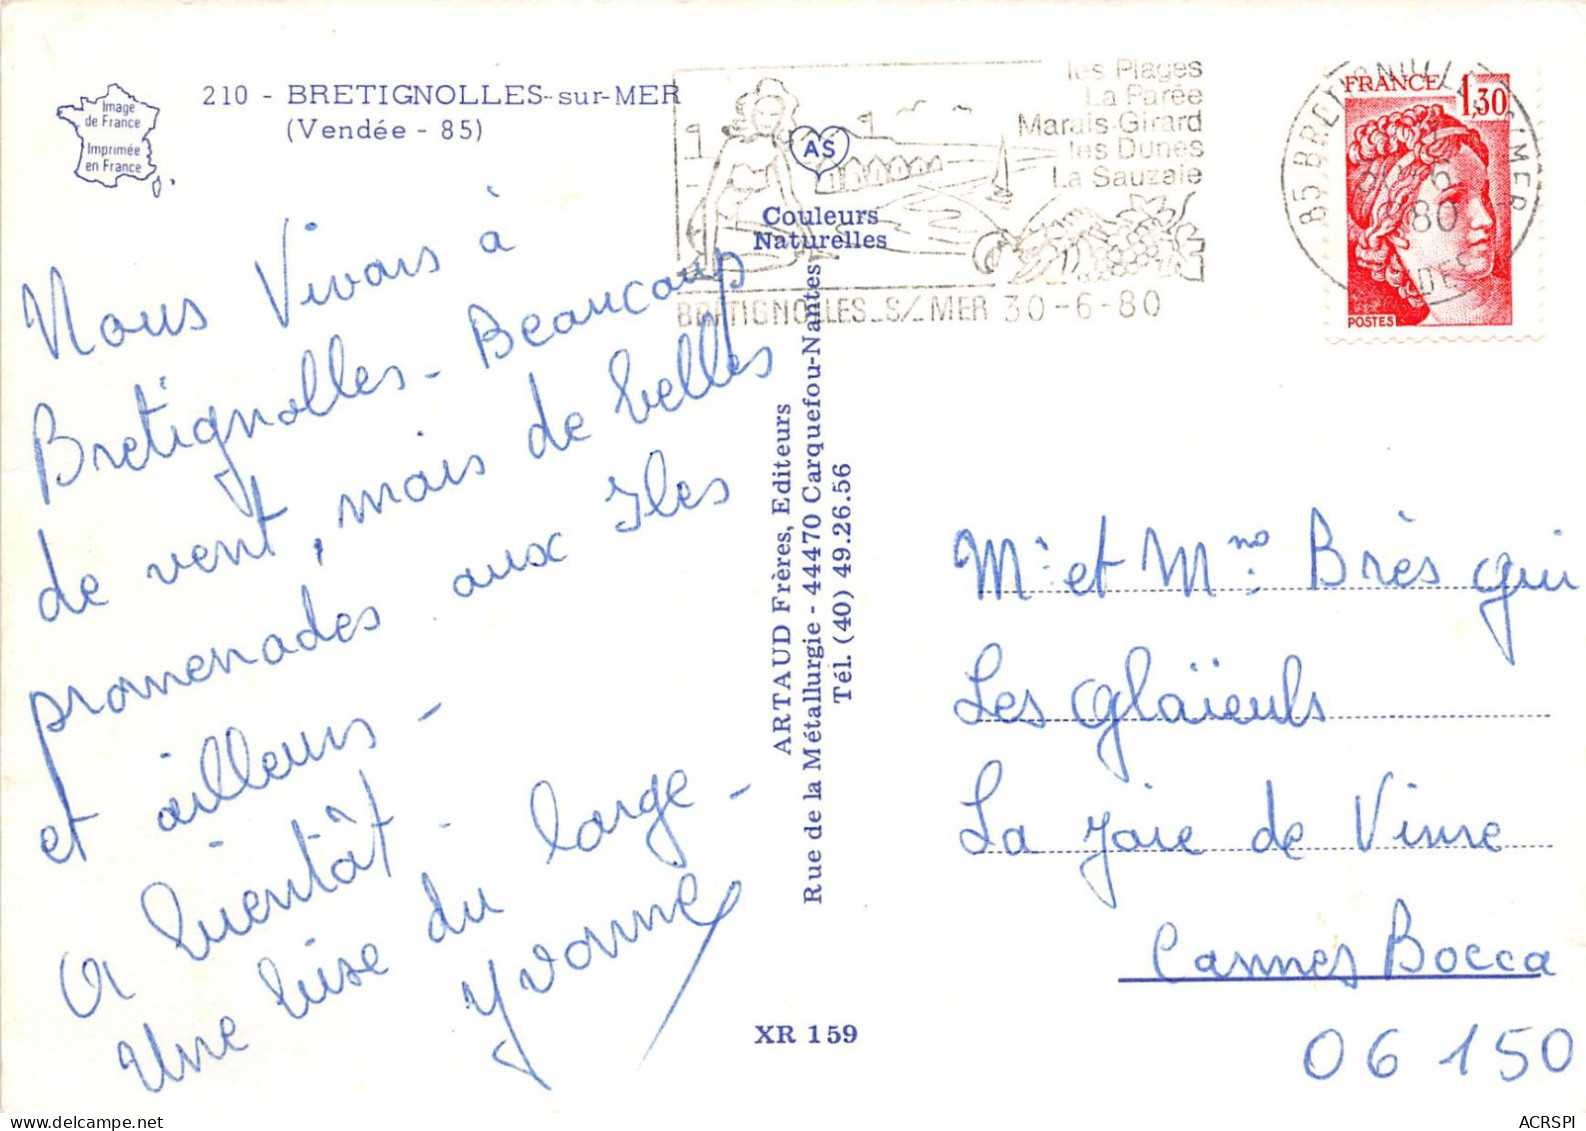 Image
de France
Imprimée
en France
210 - BRETIGNOLLES-sur-MER
(Vendée - 85)
les Plages
La Parée
Marais-Girard
les Dunes
La Sauzaie
BRETIGNOLLES_S/_MER 30-6-80
AS
Couleurs
Naturelles
FRANCE
1,30
POSTES
85 BRETIGNOLLES
MER
80
Nous Vivons à
Bretignolles - Beaucoup
de vent, mais de belles
promenades aux Iles
et ailleurs -
A bientôt -
Une bise du large -
Yvonne
ARTAUD Frères, Editeurs
Rue de la Métallurgie - 44470 Carquefou-Nantes
Tél. (40) 49.26.56
XR 159
Mr et Mme Brès
Les Glaïeuls
La Joie de Vivre
Cannes Bocca
06 150
ACRSPI